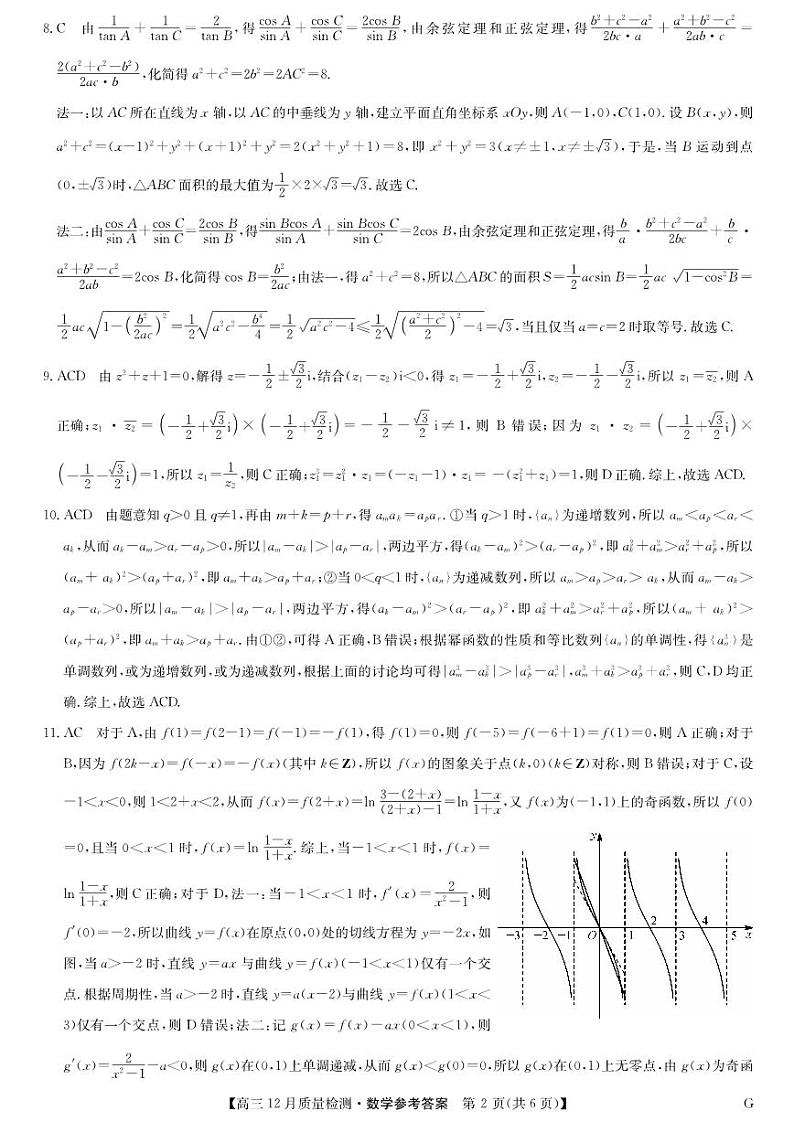 8. C　由 1/tan A + 1/tan C = 2/tan B, 得 cos A/sin A + cos C/sin C = 2cos B/sin B, 由余弦定理和正弦定理, 得 (b²+c²-a²)/(2bc·a) + (a²+b²-c²)/(2ab·c) =
2(a²+c²-b²)/(2ac·b), 化简得 a²+c²=2b²=2AC²=8.
法一:以 AC 所在直线为 x 轴,以 AC 的中垂线为 y 轴,建立平面直角坐标系 xOy,则 A(-1,0),C(1,0). 设 B(x,y),则
a²+c²=(x-1)²+y²+(x+1)²+y²=2(x²+y²+1)=8,即 x²+y²=3(x≠±1,x≠±√3),于是,当 B 运动到点
(0,±√3)时,△ABC 面积的最大值为 1/2×2×√3=√3. 故选 C.
法二:由 cos A/sin A + cos C/sin C = 2cos B/sin B, 得 sin Bcos A/sin A + sin Bcos C/sin C = 2cos B,由余弦定理和正弦定理,得 b/a · (b²+c²-a²)/(2bc) + b/c ·
(a²+b²-c²)/(2ab) = 2cos B,化简得 cos B = b²/(2ac);由法一,得 a²+c²=8,所以△ABC 的面积 S = 1/2 acsin B = 1/2 ac √(1-cos²B) =
1/2 ac √(1-(b²/(2ac))²) = 1/2 √(a²c²-b⁴/4) = 1/2 √(a²c²-4) ≤ 1/2 √(((a²+c²)/2)²-4) = √3,当且仅当 a=c=2 时取等号. 故选 C.
9. ACD　由 z²+z+1=0,解得 z=-1/2±(√3/2)i,结合(z₁-z₂)i<0,得 z₁=-1/2+(√3/2)i,z₂=-1/2-(√3/2)i,所以 z₁=z̅₂,则 A
正确;z₁·z̅₂=(-1/2+(√3/2)i)×(-1/2+(√3/2)i)=-1/2-(√3/2)i≠1,则 B 错误;因为 z₁·z₂=(-1/2+(√3/2)i)×
(-1/2-(√3/2)i)=1,所以 z₁=1/z₂,则 C 正确;z₁³=z₁²·z₁=(-z₁-1)·z₁=-(z₁²+z₁)=1,则 D 正确. 综上,故选 ACD.
10. ACD　由题意知 q>0 且 q≠1,再由 m+k=p+r,得 aₘaₖ=aₚaᵣ. ①当 q>1 时,{aₙ}为递增数列,所以 aₘ<aₚ<aᵣ<
aₖ,从而 aₖ-aₘ>aᵣ-aₚ>0,所以|aₘ-aₖ|>|aₚ-aᵣ|,两边平方,得(aₖ-aₘ)²>(aᵣ-aₚ)²,即 aₖ²+aₘ²>aᵣ²+aₚ²,所以
(aₘ+aₖ)²>(aₚ+aᵣ)²,即 aₘ+aₖ>aₚ+aᵣ;②当 0<q<1 时,{aₙ}为递减数列,所以 aₘ>aₚ>aᵣ>aₖ,从而 aₘ-aₖ>
aₚ-aᵣ>0,所以|aₘ-aₖ|>|aₚ-aᵣ|,两边平方,得(aₖ-aₘ)²>(aᵣ-aₚ)²,即 aₖ²+aₘ²>aᵣ²+aₚ²,所以(aₘ+aₖ)²>
(aₚ+aᵣ)²,即 aₘ+aₖ>aₚ+aᵣ. 由①②,可得 A 正确,B 错误;根据幂函数的性质和等比数列{aₙ}的单调性,得{aₙ³}是
单调数列,或为递增数列,或为递减数列,根据上面的讨论均可得|aₘ³-aₖ³|>|aₚ³-aᵣ³|,aₘ³+aₖ³>aₚ³+aᵣ³,则 C,D 均正
确. 综上,故选 ACD.
11. AC　对于 A,由 f(1)=f(2-1)=f(-1)=-f(1),得 f(1)=0,则 f(-5)=f(-6+1)=f(1)=0,则 A 正确;对于
B,因为 f(2k-x)=f(-x)=-f(x)(其中 k∈Z),所以 f(x)的图象关于点(k,0)(k∈Z)对称,则 B 错误;对于 C,设
-1<x<0,则 1<2+x<2,从而 f(x)=f(2+x)=ln (3-(2+x))/((2+x)-1)=ln (1-x)/(1+x),又 f(x)为(-1,1)上的奇函数,所以 f(0)
=0,且当 0<x<1 时,f(x)=ln (1-x)/(1+x). 综上,当-1<x<1 时,f(x)=
ln (1-x)/(1+x),则 C 正确;对于 D,法一:当-1<x<1 时,f′(x)=2/(x²-1),则
f′(0)=-2,所以曲线 y=f(x)在原点(0,0)处的切线方程为 y=-2x,如
图,当 a>-2 时,直线 y=ax 与曲线 y=f(x)(-1<x<1)仅有一个交
点. 根据周期性,当 a>-2 时,直线 y=a(x-2)与曲线 y=f(x)(1<x<
3)仅有一个交点,则 D 错误;法二:记 g(x)=f(x)-ax(0<x<1),则
g′(x)=2/(x²-1)-a<0,则 g(x)在(0,1)上单调递减,从而 g(x)<g(0)=0,所以 g(x)在(0,1)上无零点,由 g(x)为奇函
y
-3 -2 -1 O 1 2 3 4 5 x
【高三 12 月质量检测·数学参考答案　第 2 页(共 6 页)】　G